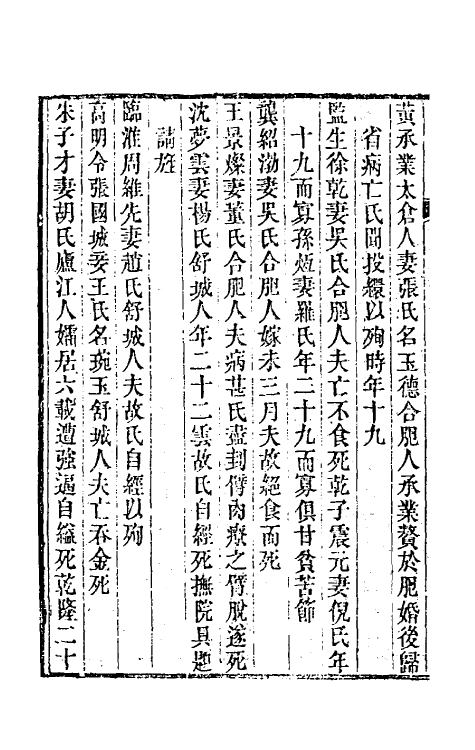 黃承業太倉人妻張氏名玉德合肥人承業贅於肥婚後歸
省病亡氏聞投繯以殉時年十九
監生徐乾妻吳氏合肥人夫亡不食死乾子震元妻倪氏年
十九而寡孫烶妻羅氏年二十九而寡俱甘貧苦節
龔紹渤妻吳氏合肥人嫁未三月夫故絕食而死
王景燦妻董氏合肥人夫病甚氏盡刲臂肉療之臂脫遂死
沈夢雲妻楊氏舒城人年二十二雲故氏自經死撫院具題
請旌
臨淮周維先妻趙氏舒城人夫故氏自經以殉
高明令張國城妾王氏名琬玉舒城人夫亡吞金死
朱子才妻胡氏廬江人孀居六載遭強逼自縊死乾隆二十